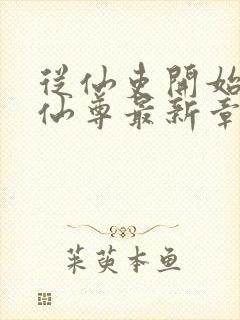 從仙吏開始
仙尊最新章
茱萸本鱼